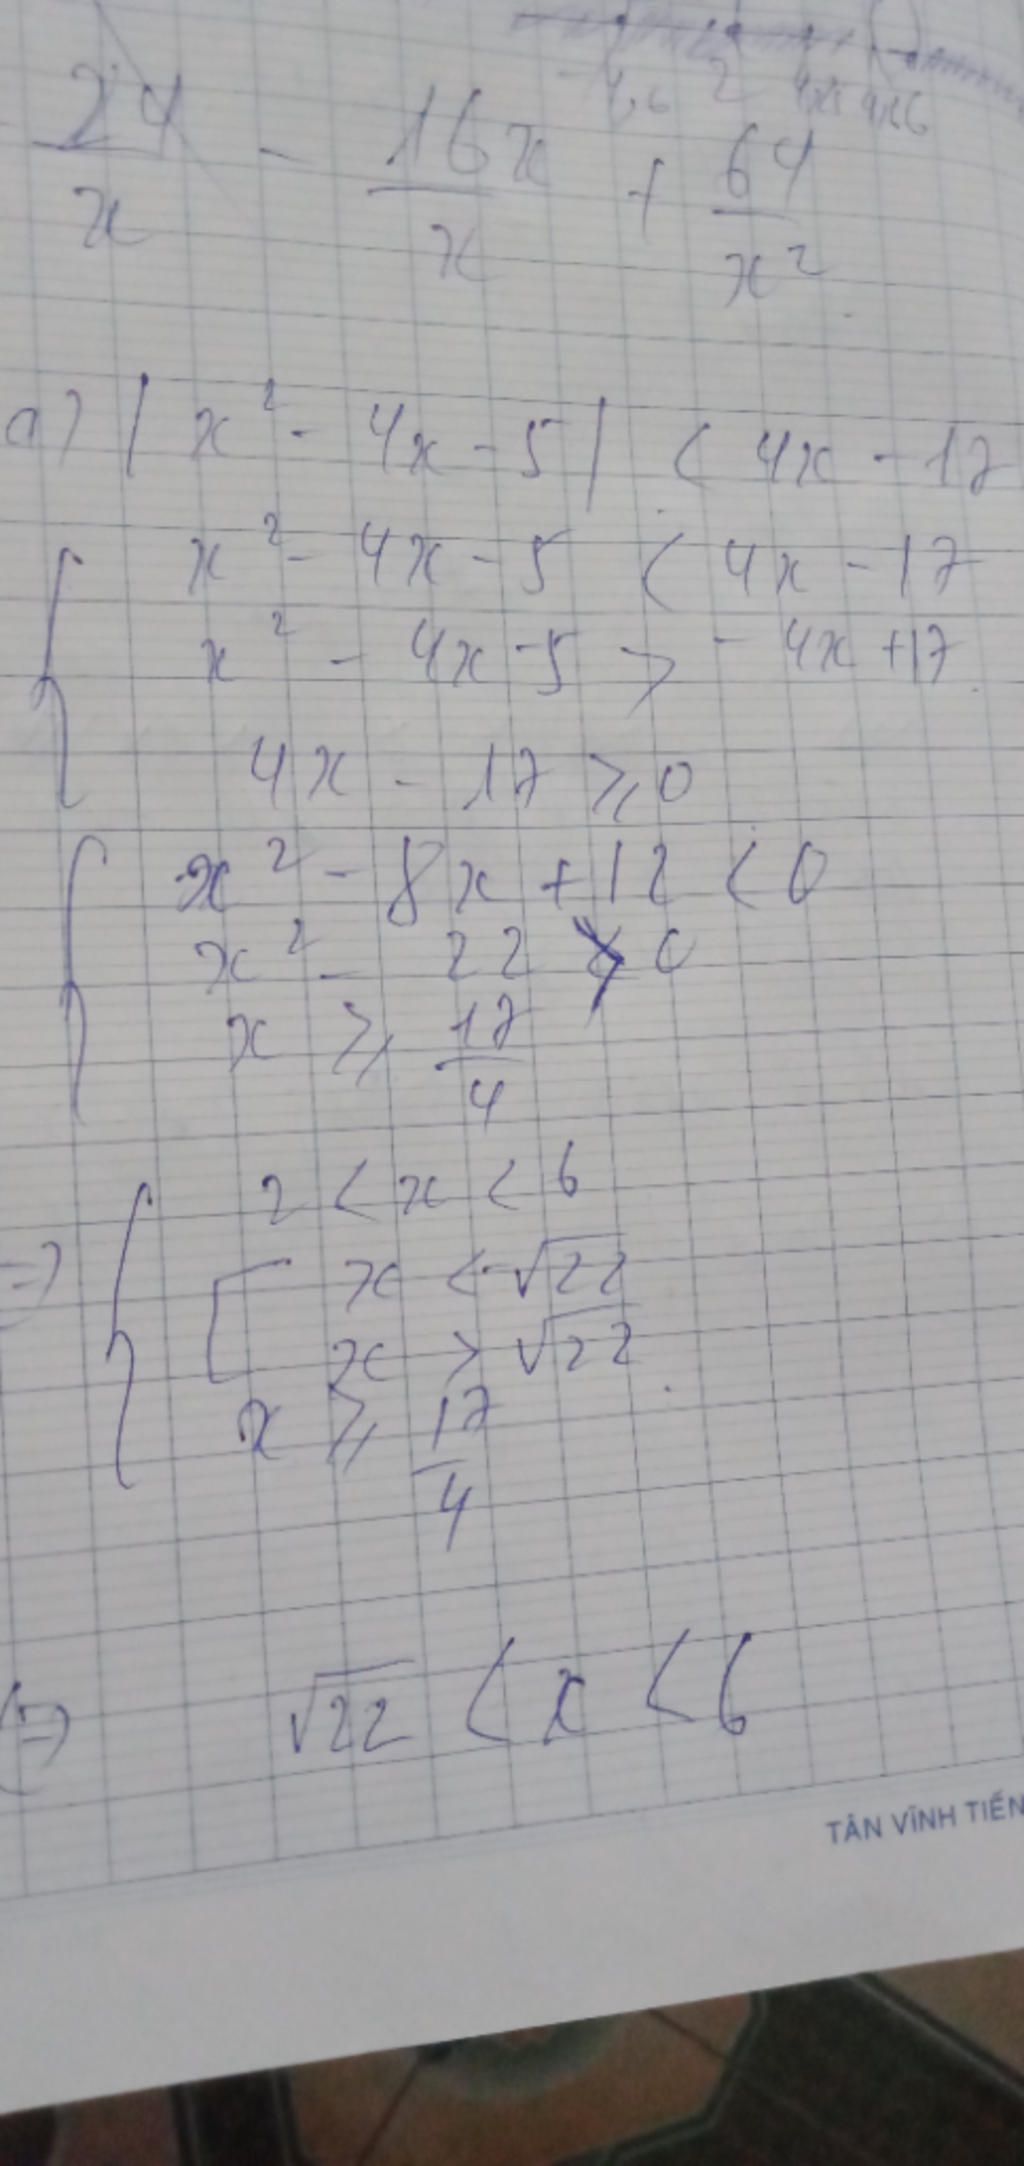 24/x - 16x/x + 64/x²
a) | x² - 4x - 5 | < 4x - 17
{ x² - 4x - 5 < 4x - 17
x² - 4x - 5 > - 4x + 17
4x - 17 ≥ 0
{ x² - 8x + 12 < 0
x² - 22 > 0
x ≥ 17/4
=> { 2 < x < 6
[ x < -√22
x > √22
x ≥ 17/4
(=) √22 < x < 6
TÂN VĨNH TIẾN